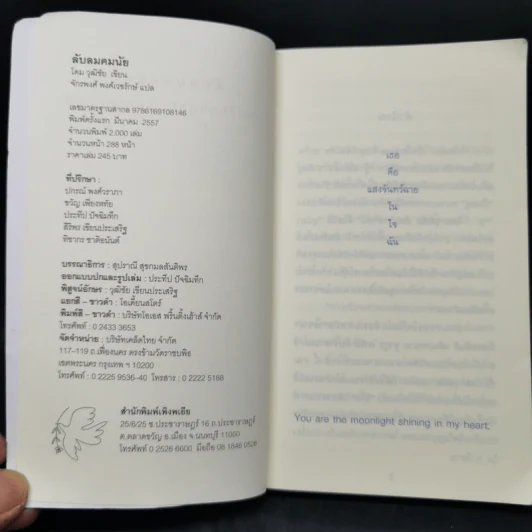 ลับลมคมนัย
โดม วุฒิชัย เขียน
จักรพงศ์ พงศ์เวชรักษ์ แปล
เลขมาตรฐานสากล 9786169108146
พิมพ์ครั้งแรก มีนาคม 2557
จำนวนพิมพ์ 2,000 เล่ม
จำนวนหน้า 288 หน้า
ราคาเล่ม 245 บาท
ที่ปรึกษา :
ปกรณ์ พงศ์วราภา
ขวัญ เพียงหทัย
ประทีป ปัจฉิมทึก
สิริพร เขียนประเสริฐ
ทิชากร ชาติอนันต์
บรรณาธิการ : สุปราณี สุขกมลสันติพร
ออกแบบปกและรูปเล่ม : ประทีป ปัจฉิมทึก
พิสูจน์อักษร : วุฒิชัย เขียนประเสริฐ
แยกสี – ขาวดำ : ไอเดี้ยนสโตร์
พิมพ์สี – ขาวดำ : บริษัทโอเอส พริ้นติ้งเฮ้าส์ จำกัด
โทรศัพท์ : 0 2433 3653
จัดจำหน่าย : บริษัทเคล็ดไทย จำกัด
117-119 ถ.เฟื่องนคร ตรงข้ามวัดราชบพิธ
เขตพระนคร กรุงเทพ ฯ 10200
โทรศัพท์ : 0 2225 9536-40 โทรสาร : 0 2222 5188
สำนักพิมพ์เพิงพเยีย
25/6/25 ซ.ประชาราษฎร์ 16 ถ.ประชาราษฎร์
ต.ตลาดขวัญ อ.เมือง จ.นนทบุรี 11000
โทรศัพท์ 0 2526 6600 มือถือ 08 1646 0526
เธอ
คือ
แสงจันทร์ฉาย
ใน
ใจ
ฉัน
You are the moonlight shining in my heart.